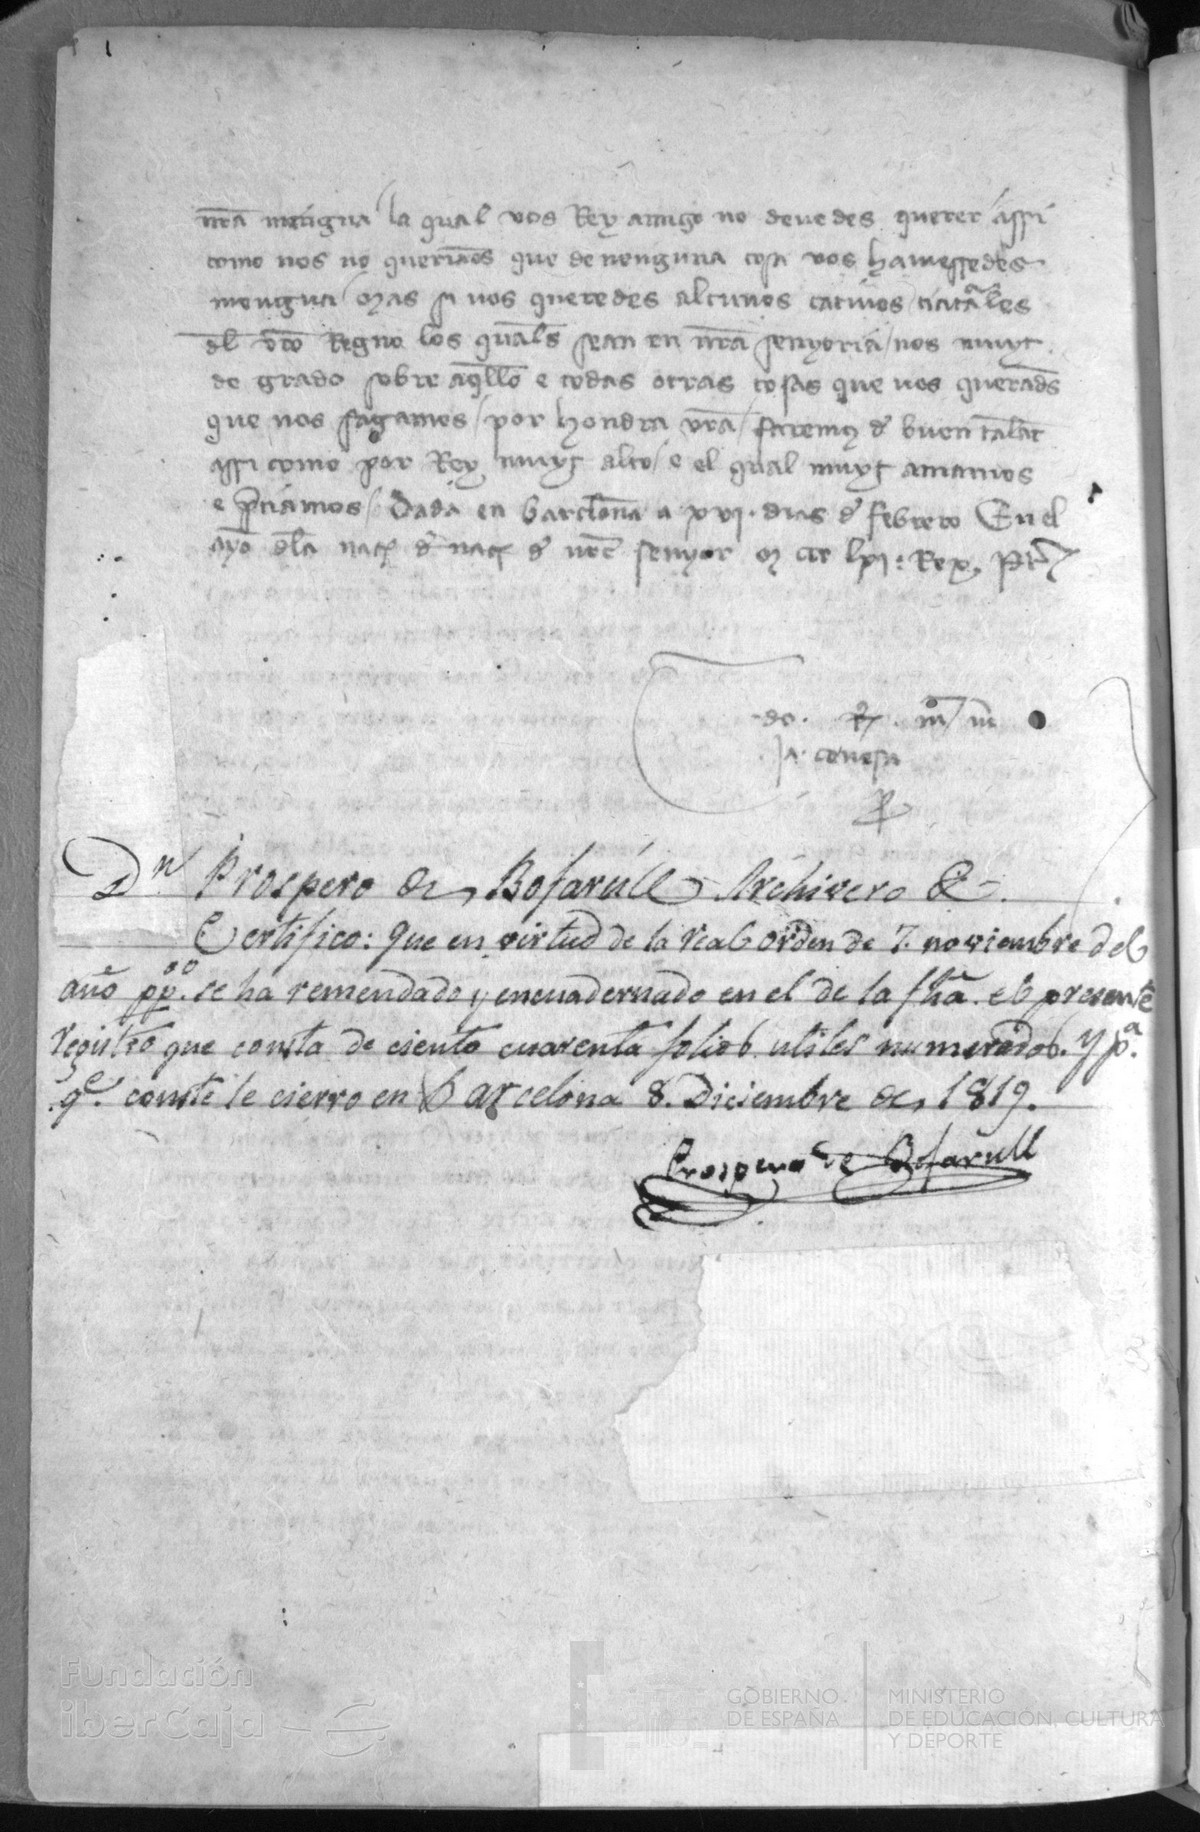 nr̃a mengua / la qual vos Rey amigo no deuedes querer / assi
como nos no queriamos que de nenguna cosa vos hauiessedes
mengua / Mas si vos queredes alcunos catiuos naturales
del vr̃o Regno los quals sean en nr̃a senyoria / nos muyt
de grado sobre aq̃llo e todas otras cosas que vos querades
que nos fagamos / por hondra vr̃a / faremos de buen talant
assi como por Rey muyt alto / e el qual muyt amamos
e p̃ciamos / Dada en barclona a xvi. dias de febrero En el
anyo dela de nr̃e senyor lxi: Rex. P̃r
ja. conesa
Dn. Prospero de Bofarúll Archivero &.
Certifico: que en virtud de la real orden de 7. noviembre del
año pp.do se ha remendado y encuadernado en el de la fha. el presente
registro que consta de ciento cuarenta folios utiles numerados. Y pa.
qe. conste le cierro en Barcelona 8. Diciembre de 1819.
Prospero de Bofarull
Fundación
iberCaja
GOBIERNO
DE ESPAÑA
MINISTERIO
DE EDUCACIÓN, CULTURA
Y DEPORTE